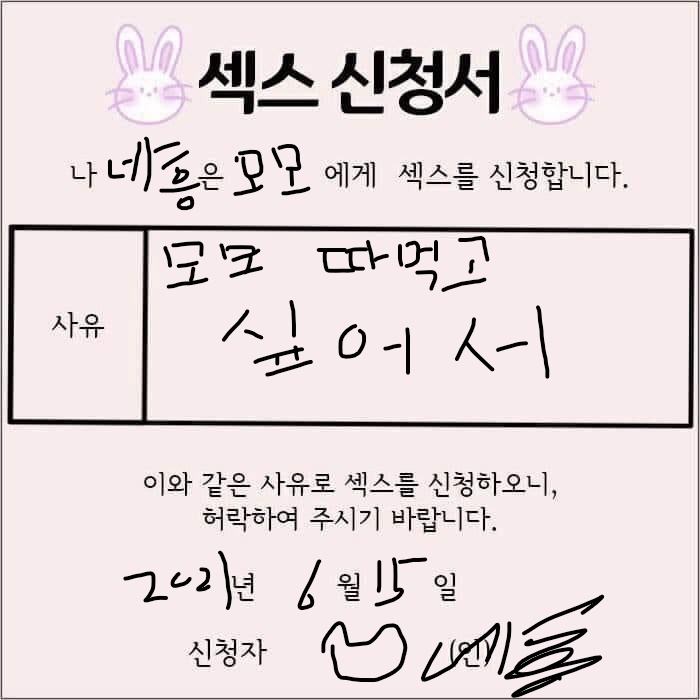 섹스 신청서
나 네흥은 모모에게 섹스를 신청합니다.
사유
모모 따먹고
싶어서
이와 같은 사유로 섹스를 신청하오니,
허락하여 주시기 바랍니다.
2021년 6월 15일
신청자 (인)